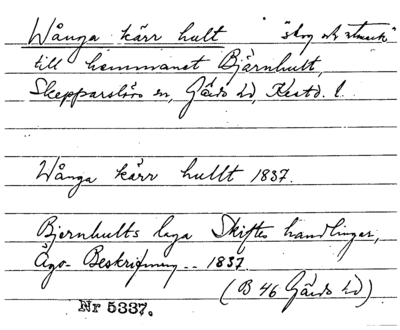 Wånga kärr hult "skog och utmark"
till hemmanet Bjärnhult,
Skepparslövs sn, Gärds hd, Kristd. l.
Wånga kärr hullt 1837.
Bjernhults laga Skiftes handlingar,
Ägo-Beskrifning -- 1837.
(B 46 Gärds hd)
Nr 5337.